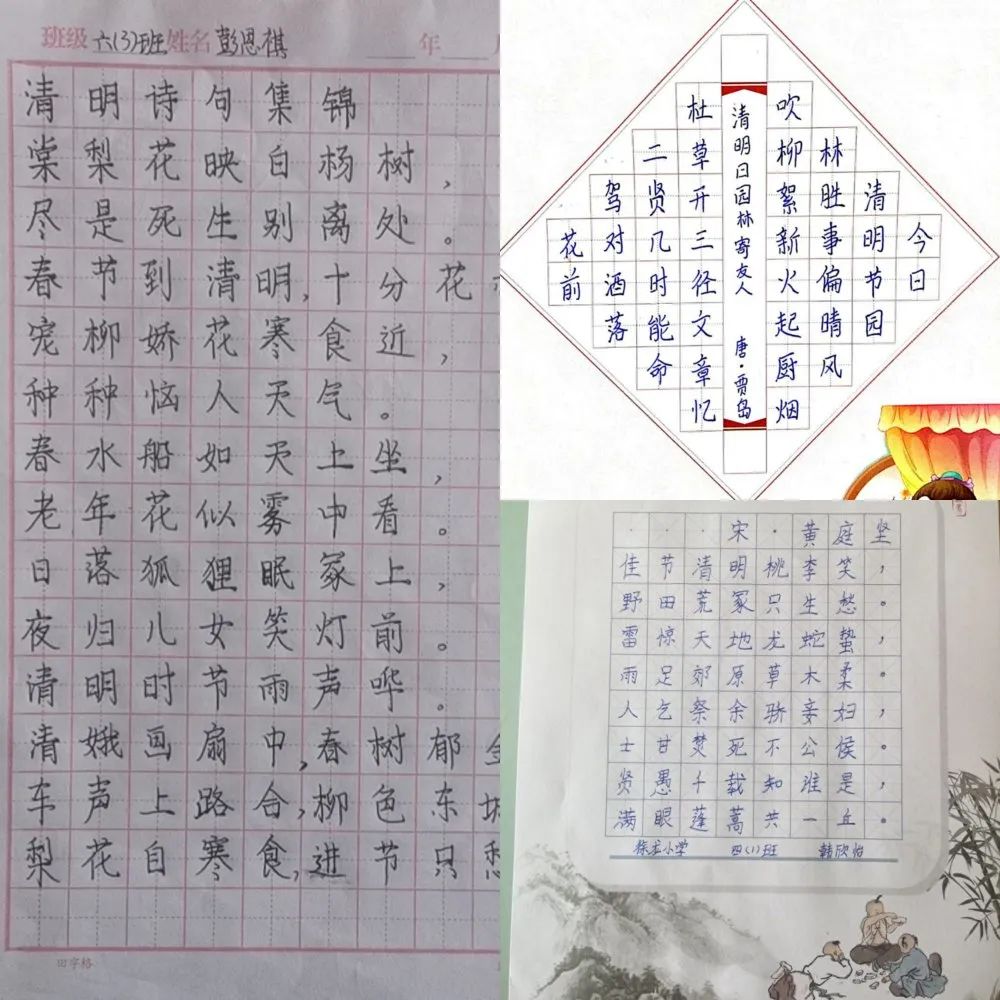 班级 六(3)班 姓名 彭恩祺 年
清明诗句集锦
棠梨花映白杨树,
尽是死生别离处。
春节到清明,十分花
宠柳娇花寒食近,
种种恼人天气。
春水船如天上坐,
老年花似雾中看。
日落狐狸眠冢上,
夜归儿女笑灯前。
清明时节雨声哗。
清娥画扇中,春树郁
车声上路合,柳色东
梨花自寒食,进节只
田字格
今日
清明节园
林胜事偏晴风
吹柳絮新火起厨烟
清明日园林寄友人 唐·贾岛
杜草开三径文章忆
二贤几时能命
驾对酒落
花前
···宋·黄庭坚
佳节清明桃李笑,
野田荒冢只生愁。
雷惊天地龙蛇蛰,
雨足郊原草木柔。
人乞祭余骄妾妇,
士甘焚死不公侯。
贤愚千载知谁是,
满眼蓬蒿共一丘。
小学 四(1)班 韩欣怡